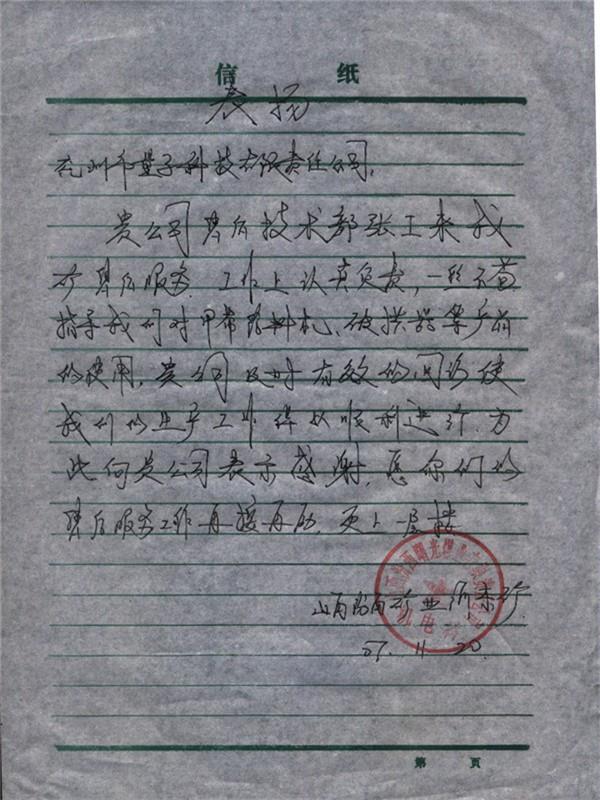 信 纸
表扬
兖州市量子科技有限责任公司,
贵公司售后技术部张工来我
矿售后服务.工作上认真负责,一丝不苟
指导我们对甲带给料机、破拱器等产品
的使用,贵公司及时有效的回访使
我们的生产工作得以顺利进行.为
此向贵公司表示感谢,愿你们的
售后服务工作再接再厉,更上一层楼
山西汾西矿业
07.11.20.
机电科
第 页